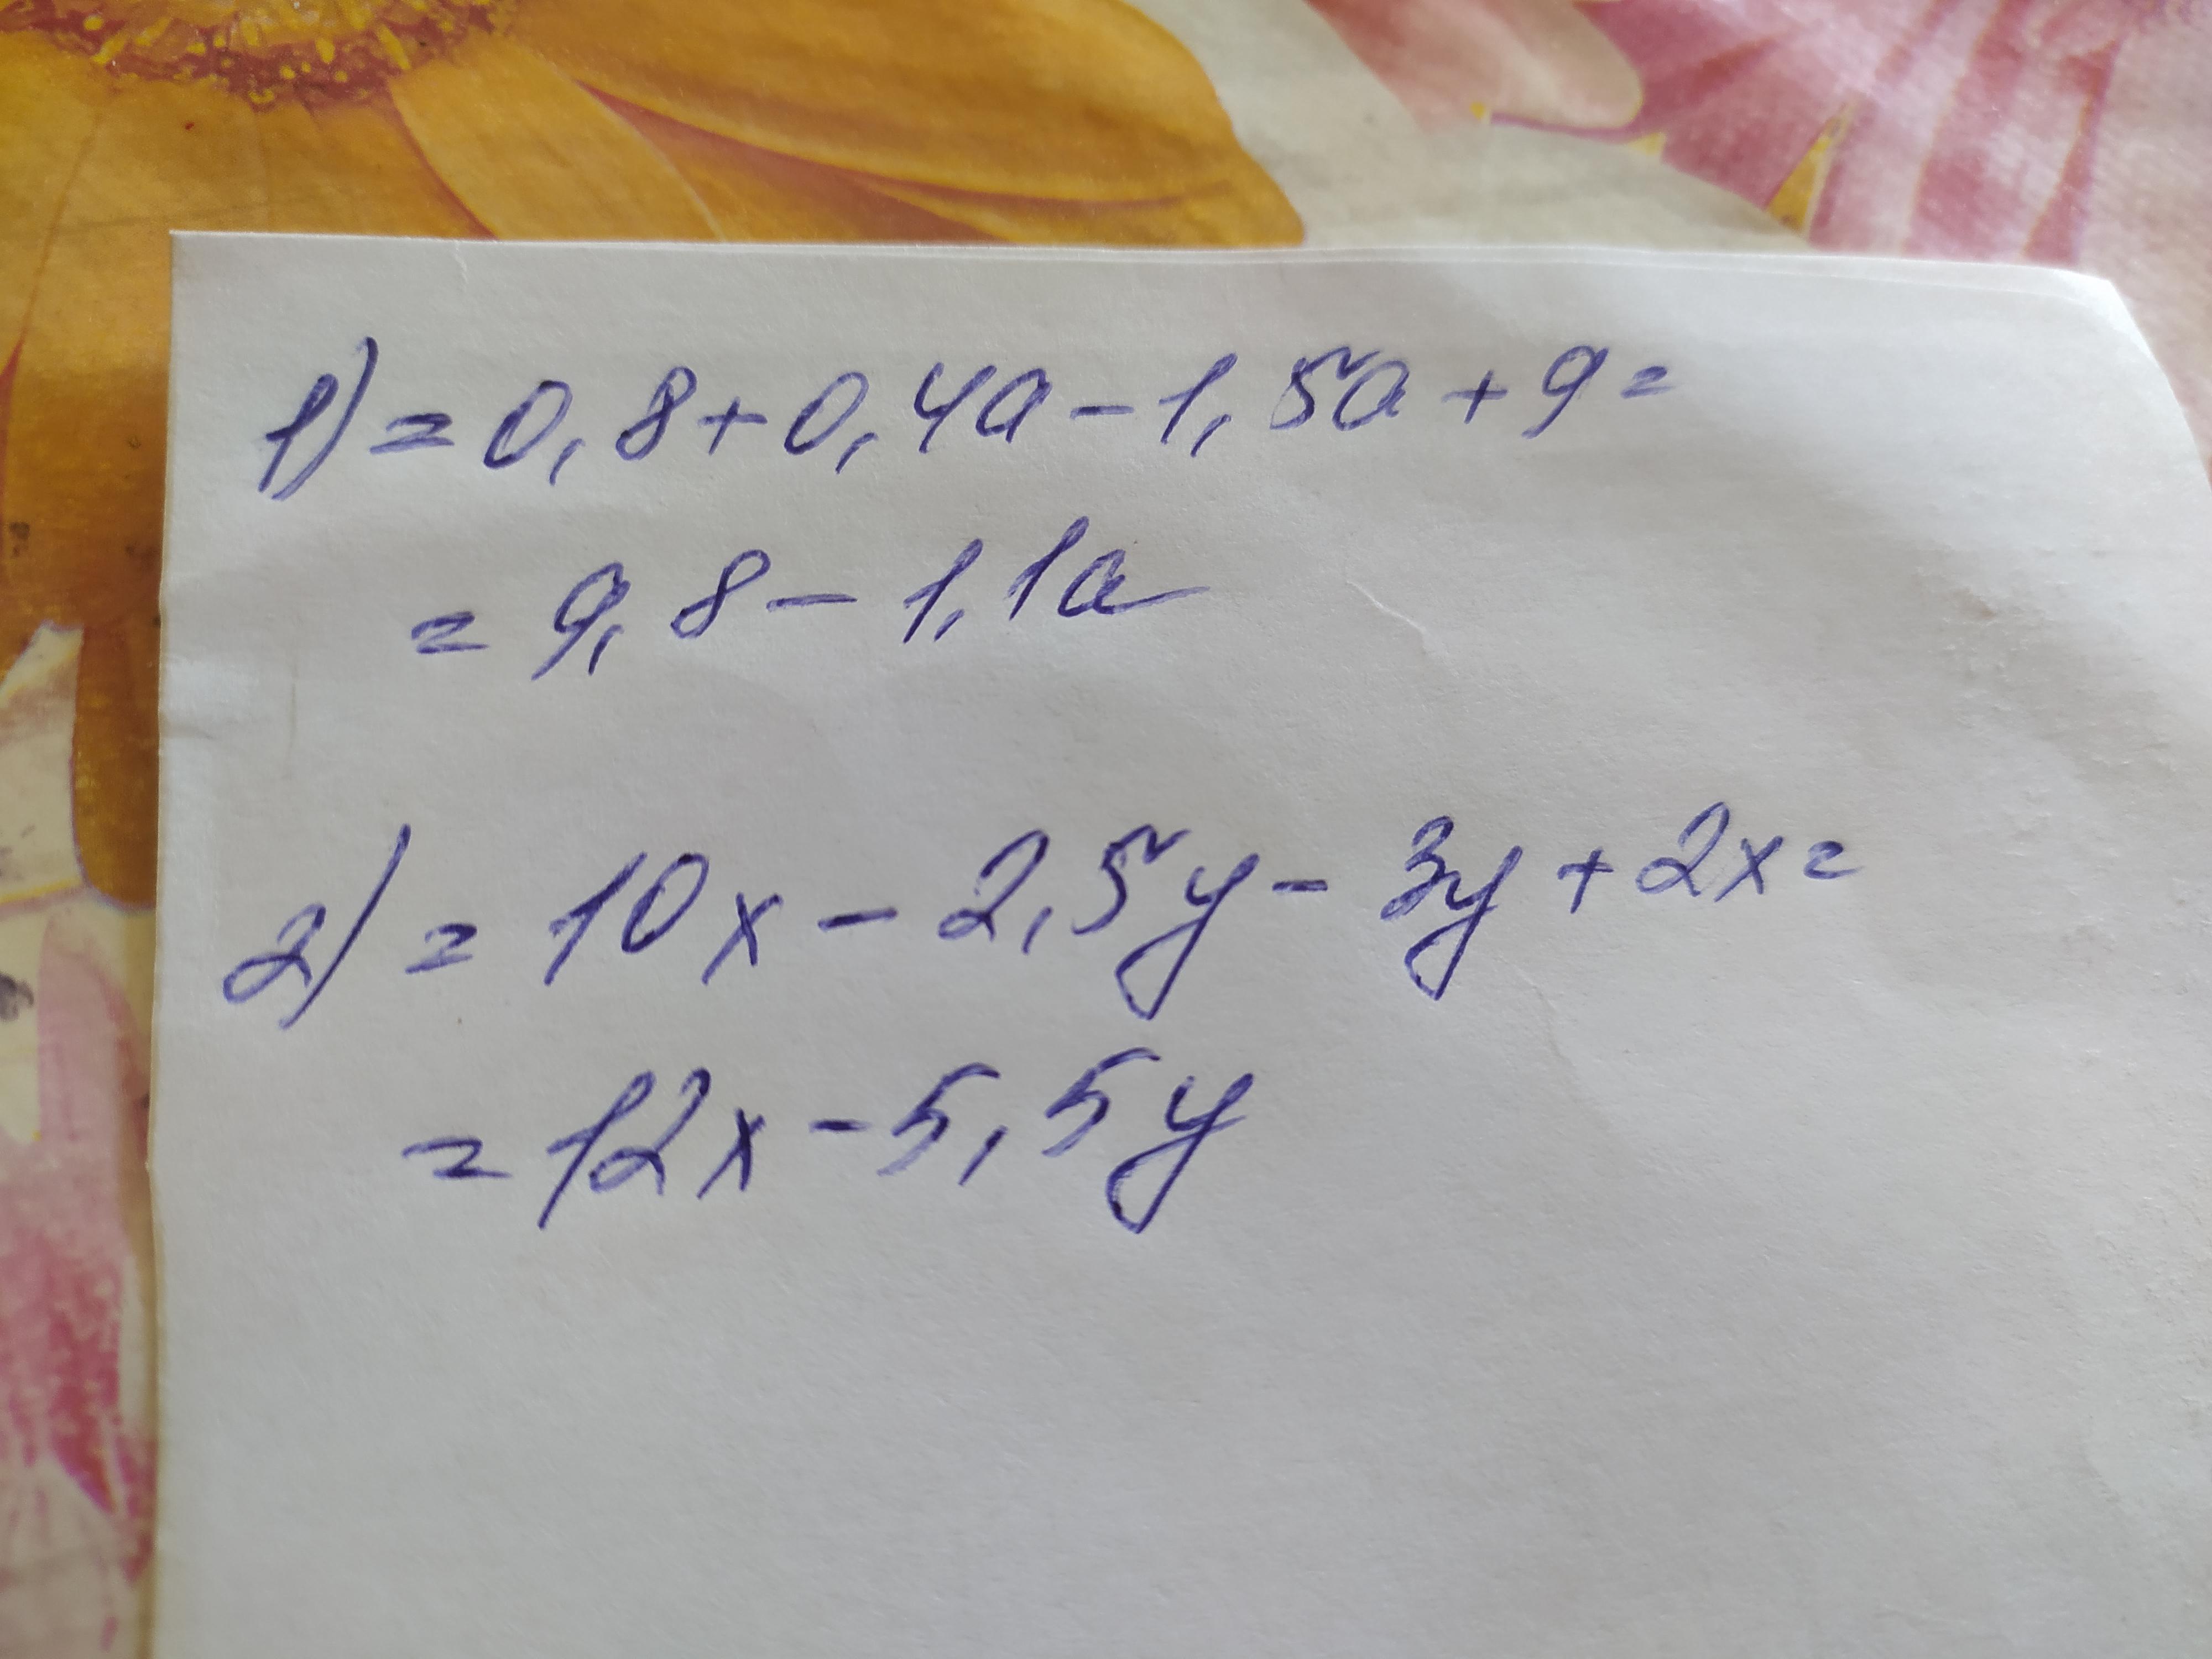 1) = 0,8 + 0,4a - 1,5a + 9 =
= 9,8 - 1,1a
2) = 10x - 2,5y - 3y + 2x =
= 12x - 5,5y